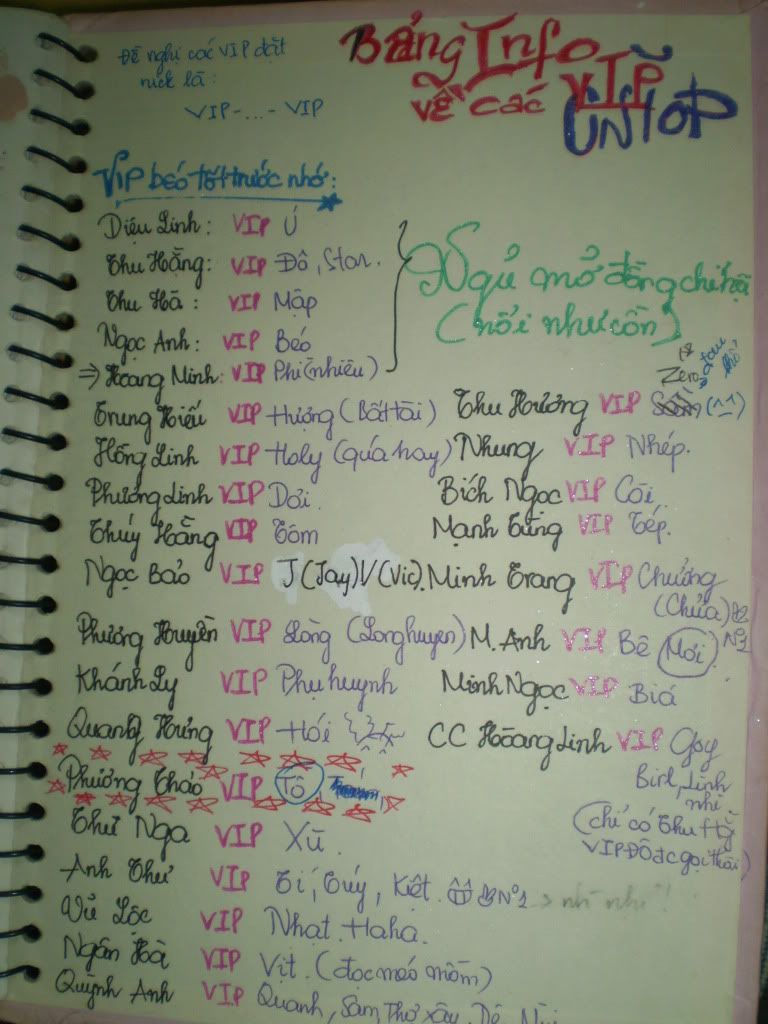 Đề nghị các VIP đặt
nick là:
VIP-...-VIP
Bảng Info
về các VIP
UNTOP
VIP béo tốt trước nhớ:
Diệu Linh: VIP Ú
Thu Hằng: VIP Đô, Star.
Thu Hà: VIP Mập
Ngọc Anh: VIP Béo
⇒ Hoang Minh: VIP Phì (nhiêu)
Ngủ mở đồng chí hạ
(nói như cồn)
Zero
Trung Hiếu VIP Hượng (Bất tài)
Thu Hương VIP (^_^)
Hồng Linh VIP Holy (quá hay)
Nhung VIP Nhép.
Phương Linh VIP Dơi.
Bích Ngọc VIP Còi
Thúy Hằng VIP Tôm
Mạnh Tùng VIP Tép.
Ngọc Bảo VIP J (Jay) V (Vic).
Minh Trang VIP Chưởng
(Chửa)
Phương Huyền VIP Lòng (Long huyen)
M. Anh VIP Bê Mới
N°1
Khánh Ly VIP Phụ huynh
Minh Ngọc VIP Biá
Quang Hưng VIP Hói
CC Hoàng Linh VIP Goy
Birl, Linh
nhi
(chỉ có Thu Hg
VIP Đô đc gọi thôi)
Phương Thảo VIP Tô
Thư Nga VIP Xù.
Anh Thư VIP Tí, Túy, Kiệt. N°1 > nhì nhì!
Vũ Lộc VIP Nhạt. Haha.
Ngân Hà VIP Vịt. (đọc méo mồm)
Quỳnh Anh VIP Quanh, Sâm, Thơ Xây, Dê,